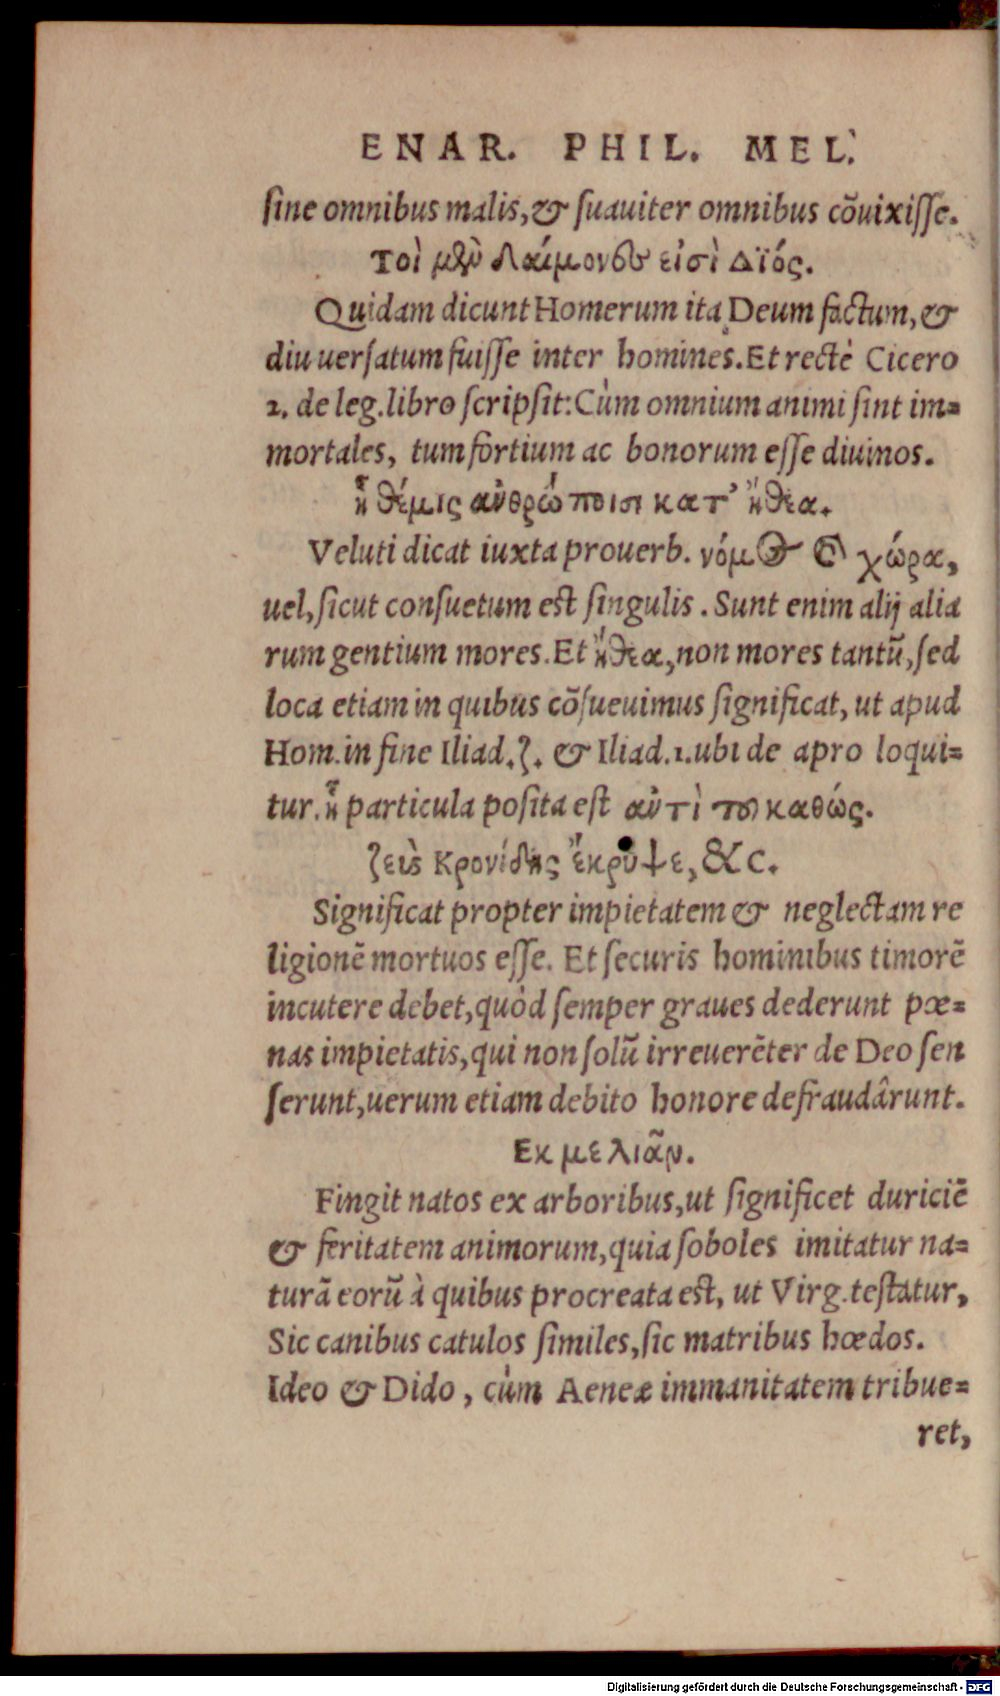 ENAR. PHIL. MEL.
ſine omnibus malis, & ſuauiter omnibus cõuixiſſe.
Τοὶ μὲν δαίμονες εἰσὶ Διός.
Quidam dicunt Homerum ita Deum factum, &
diu uerſatum fuiſſe inter homines. Et rectè Cicero
2. de leg. libro ſcripſit: Cùm omnium animi ſint im=
mortales, tum fortium ac bonorum eſſe diuinos.
ἣ θέμις ἀνθρώποισι κατ’ ἤθεα.
Veluti dicat iuxta prouerb. νόμος καὶ χώρα,
uel, ſicut conſuetum eſt ſingulis. Sunt enim alij alia
rum gentium mores. Et ἤθεα, non mores tantũ, ſed
loca etiam in quibus cõſueuimus ſignificat, ut apud
Hom. in fine Iliad. ζ. & Iliad. 1. ubi de apro loqui=
tur. ἣ particula poſita eſt ἀντὶ τοῦ καθώς.
ζεὺς Κρονίδης ἔκρυψε, &c.
Significat propter impietatem & neglectam re
ligionẽ mortuos eſſe. Et ſecuris hominibus timorẽ
incutere debet, quòd ſemper graues dederunt pœ=
nas impietatis, qui non ſolũ irreuerẽter de Deo ſen
ſerunt, uerum etiam debito honore defraudârunt.
Εκ μελιᾶν.
Fingit natos ex arboribus, ut ſignificet duriciẽ
& feritatem animorum, quia ſoboles imitatur na=
turã eorũ à quibus procreata eſt, ut Virg. teſtatur,
Sic canibus catulos ſimiles, ſic matribus hœdos.
Ideo & Dido, cùm Aeneæ immanitatem tribue=
ret,
Digitalisierung gefördert durch die Deutsche Forschungsgemeinschaft - DFG